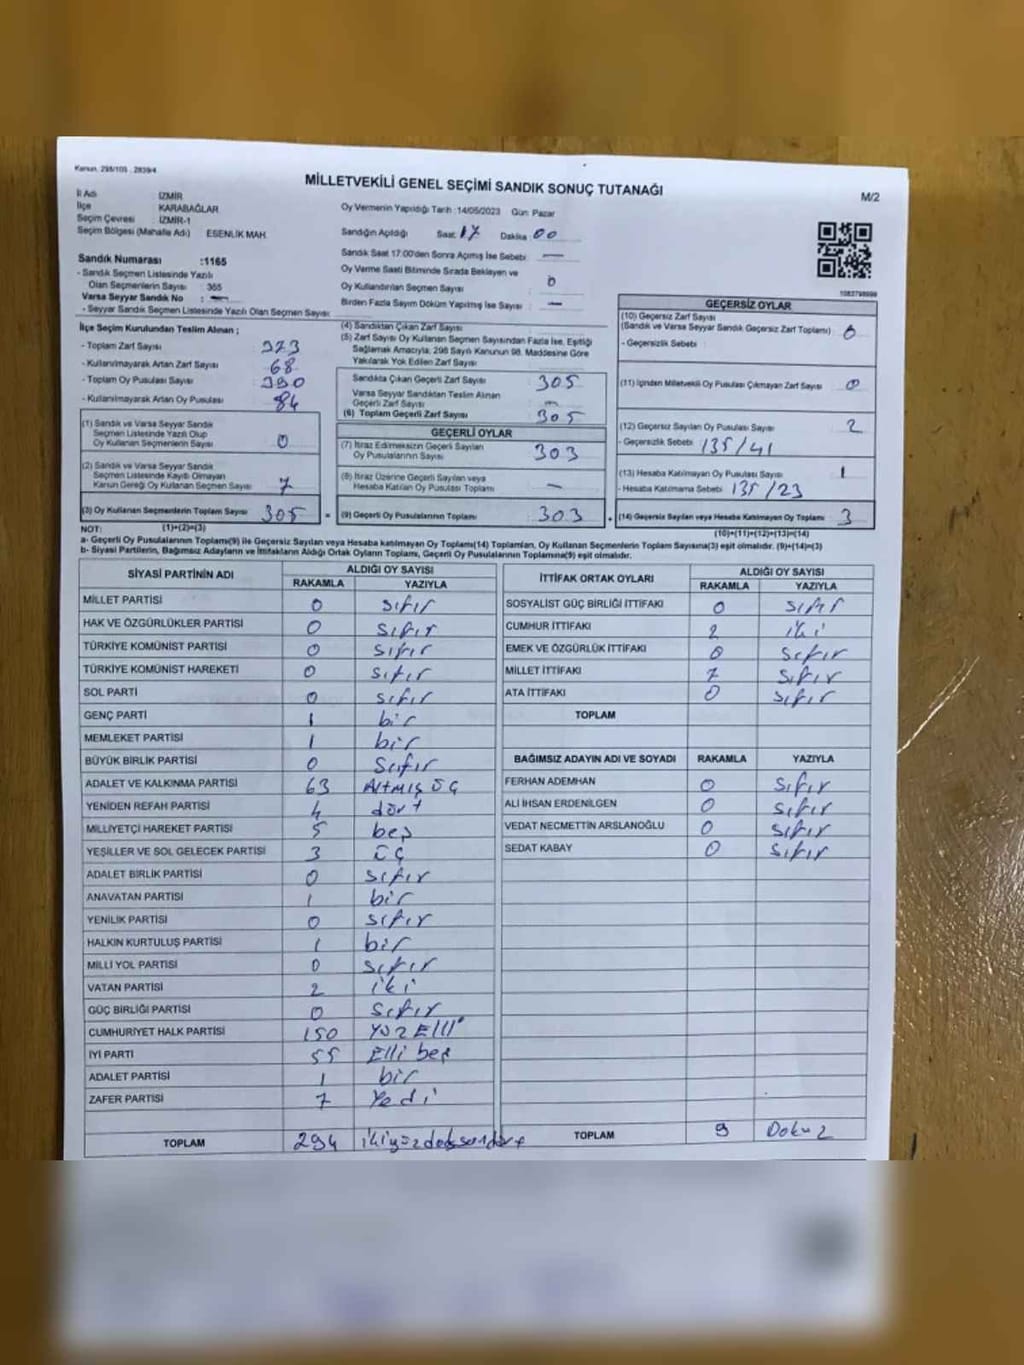 Kanun, 298/105 , 2839/4
MİLLETVEKİLİ GENEL SEÇİMİ SANDIK SONUÇ TUTANAĞI
M/2
İl Adı İZMİR
İlçe KARABAĞLAR
Seçim Çevresi İZMİR-1
Seçim Bölgesi (Mahalle Adı) ESENLİK MAH.
Sandık Numarası :1165
- Sandık Seçmen Listesinde Yazılı
Olan Seçmenlerin Sayısı : 365
Varsa Seyyar Sandık No : -
- Seyyar Sandık Seçmen Listesinde Yazılı Olan Seçmen Sayısı:
Oy Vermenin Yapıldığı Tarih : 14/05/2023 Gün: Pazar
Sandığın Açıldığı Saat: 17 Dakika : 00
Sandık Saat 17:00'den Sonra Açılmış İse Sebebi: —
Oy Verme Saati Bitiminde Sırada Bekleyen ve
Oy Kullandırılan Seçmen Sayısı : 0
Birden Fazla Sayım Döküm Yapılmış İse Sayısı : —
1082798999
İlçe Seçim Kurulundan Teslim Alınan ;
- Toplam Zarf Sayısı : 373
- Kullanılmayarak Artan Zarf Sayısı : 68
- Toplam Oy Pusulası Sayısı : 390
- Kullanılmayarak Artan Oy Pusulası : 84
(1) Sandık ve Varsa Seyyar Sandık
Seçmen Listesinde Yazılı Olup
Oy Kullanan Seçmenlerin Sayısı : 0
(2) Sandık ve Varsa Seyyar Sandık
Seçmen Listesinde Kayıtlı Olmayan
Kanun Gereği Oy Kullanan Seçmen Sayısı : 7
(3) Oy Kullanan Seçmenlerin Toplam Sayısı : 305
(1)+(2)=(3)
(4) Sandıktan Çıkan Zarf Sayısı :
(5) Zarf Sayısı Oy Kullanan Seçmen Sayısından Fazla İse, Eşitliği
Sağlamak Amacıyla; 298 Sayılı Kanunun 98. Maddesine Göre
Yakılarak Yok Edilen Zarf Sayısı :
Sandıkta Çıkan Geçerli Zarf Sayısı : 305
Varsa Seyyar Sandıktan Teslim Alınan
Geçerli Zarf Sayısı : —
(6) Toplam Geçerli Zarf Sayısı : 305
GEÇERLİ OYLAR
(7) İtiraz Edilmeksizin Geçerli Sayılan
Oy Pusulalarının Sayısı : 303
(8) İtiraz Üzerine Geçerli Sayılan veya
Hesaba Katılan Oy Pusulası Toplamı : —
= (9) Geçerli Oy Pusulalarının Toplamı : 303
GEÇERSİZ OYLAR
(10) Geçersiz Zarf Sayısı
(Sandık ve Varsa Seyyar Sandık Geçersiz Zarf Toplamı) : 0
- Geçersizlik Sebebi :
(11) İçinden Milletvekili Oy Pusulası Çıkmayan Zarf Sayısı : 0
(12) Geçersiz Sayılan Oy Pusulası Sayısı : 2
- Geçersizlik Sebebi : 135/41
(13) Hesaba Katılmayan Oy Pusulası Sayısı : 1
- Hesaba Katılmama Sebebi : 135/23
+ (14) Geçersiz Sayılan veya Hesaba Katılmayan Oy Toplamı : 3
(10)+(11)+(12)+(13)=(14)
NOT:
a- Geçerli Oy Pusulalarının Toplamı(9) ile Geçersiz Sayılan veya Hesaba katılmayan Oy Toplamı(14) Toplamları, Oy Kullanan Seçmenlerin Toplam Sayısına(3) eşit olmalıdır. (9)+(14)=(3)
b- Siyasi Partilerin, Bağımsız Adayların ve İttifakların Aldığı Ortak Oyların Toplamı, Geçerli Oy Pusulalarının Toplamına(9) eşit olmalıdır.
SİYASİ PARTİNİN ADI ALDIĞI OY SAYISI
RAKAMLA YAZIYLA
MİLLET PARTİSİ 0 sıfır
HAK VE ÖZGÜRLÜKLER PARTİSİ 0 sıfır
TÜRKİYE KOMÜNİST PARTİSİ 0 sıfır
TÜRKİYE KOMÜNİST HAREKETİ 0 sıfır
SOL PARTİ 0 sıfır
GENÇ PARTİ 1 bir
MEMLEKET PARTİSİ 1 bir
BÜYÜK BİRLİK PARTİSİ 0 sıfır
ADALET VE KALKINMA PARTİSİ 63 Altmış üç
YENİDEN REFAH PARTİSİ 4 dört
MİLLİYETÇİ HAREKET PARTİSİ 5 beş
YEŞİLLER VE SOL GELECEK PARTİSİ 3 üç
ADALET BİRLİK PARTİSİ 0 sıfır
ANAVATAN PARTİSİ 1 bir
YENİLİK PARTİSİ 0 sıfır
HALKIN KURTULUŞ PARTİSİ 1 bir
MİLLİ YOL PARTİSİ 0 sıfır
VATAN PARTİSİ 2 iki
GÜÇ BİRLİĞİ PARTİSİ 0 sıfır
CUMHURİYET HALK PARTİSİ 150 Yüz Elli
İYİ PARTİ 55 Elli beş
ADALET PARTİSİ 1 bir
ZAFER PARTİSİ 7 Yedi
TOPLAM 294 ikiyüzdoksandört
İTTİFAK ORTAK OYLARI ALDIĞI OY SAYISI
RAKAMLA YAZIYLA
SOSYALİST GÜÇ BİRLİĞİ İTTİFAKI 0 sıfır
CUMHUR İTTİFAKI 2 iki
EMEK VE ÖZGÜRLÜK İTTİFAKI 0 sıfır
MİLLET İTTİFAKI 7 sıfır
ATA İTTİFAKI 0 sıfır
TOPLAM
BAĞIMSIZ ADAYIN ADI VE SOYADI RAKAMLA YAZIYLA
FERHAN ADEMHAN 0 sıfır
ALİ İHSAN ERDENİLGEN 0 sıfır
VEDAT NECMETTİN ARSLANOĞLU 0 sıfır
SEDAT KABAY 0 sıfır
TOPLAM 9 Dokuz